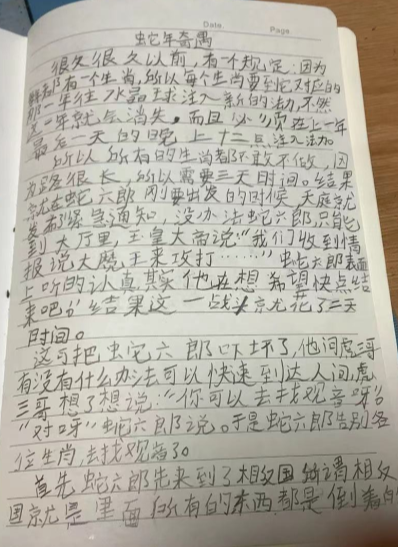 Date.
Page
蛇年奇遇
很久很久以前,有个规定:因为
每年都有一个生肖,所以每个生肖要到它对应的
前一年往水晶球注入新的法力,不然
这一年就会消失,而且必须在上一年
最后一天的晚上十二点注入法力。
所以所有的生肖都不敢不做,因
为路很长,所以需要三天时间。结果
京尤在蛇六郎刚要出发的时候,天庭京尤
发布了紧急通知,没办法蛇六郎只能
到大厅里,玉皇大帝说:“我们收到情
报说大魔王来攻打……”蛇六郎表面
上听的认真其实他在想希望快点结
束吧!结果这一战京尤花了二天
时间。
这可把蛇六郎吓坏了,他问虎哥
有没有什么办法可以快速到达人间,虎
三哥想了想说:“你可以去找观音呀!”
“对呀”蛇六郎说。于是蛇六郎告别各
位生肖,去找观音了。
首先蛇六郎先来到了相反国所谓相反
国京尤是里面所有的东西都是倒着的